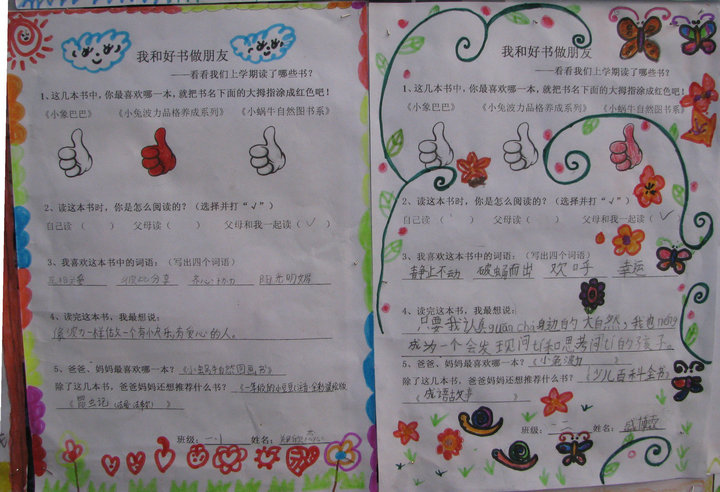 我和好书做朋友
——看看我们上学期读了哪些书?
1、这几本书中,你最喜欢哪一本,就把书名下面的大拇指涂成红色吧!
《小象巴巴》 《小兔波力品格养成系列》 《小蜗牛自然图书系》
2、读这本书时,你是怎么阅读的?(选择并打“√”)
自己读( ) 父母读( ) 父母和我一起读(√)
3、我喜欢这本书中的词语:(写出四个词语)
齐心协力 阳光明媚
4、读完这本书,我最想说:
像波力一样做一个有小伙乐,有爱心的人。
5、爸爸、妈妈最喜欢哪一本?《小蜗牛自然图画书》
除了这几本书,爸爸妈妈还想推荐什么书?《一年级的小豆豆》
《昆虫记》
班级:一.1 姓名:
我和好书做朋友
——看看我们上学期读了哪些书?
1、这几本书中,你最喜欢哪一本,就把书名下面的大拇指涂成红色吧!
《小象巴巴》 《小兔波力品格养成系列》 《小蜗牛自然图书系》
2、读这本书时,你是怎么阅读的?(选择并打“√”)
自己读( ) 父母读( ) 父母和我一起读(√)
3、我喜欢这本书中的词语:(写出四个词语)
静止不动 破蛹而出 欢呼 幸运
4、读完这本书,我最想说:
只要我认真guān chá身边的大自然,我也néng
成为一个会发现问tí和思考问tí的孩子。
5、爸爸、妈妈最喜欢哪一本?《小兔波力》
除了这几本书,爸爸妈妈还想推荐什么书?《少儿百科全书》
《成语故事》
班级:一.二 姓名: